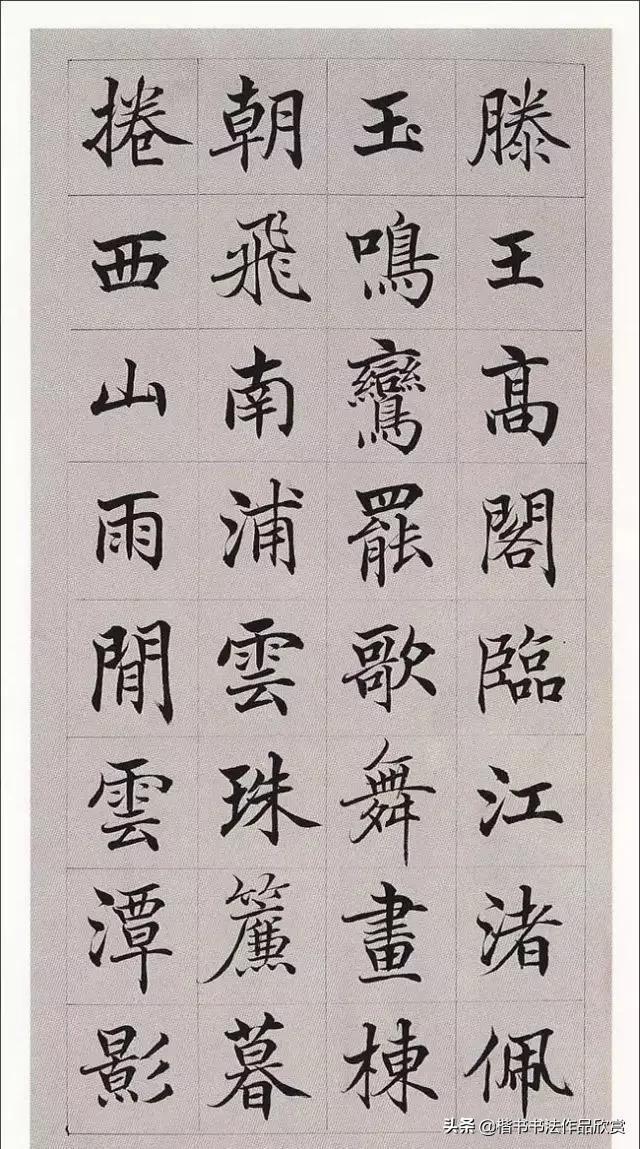 滕王高閣臨江渚佩
玉鳴鸞罷歌舞畫棟
朝飛南浦雲珠簾暮
捲西山雨閒雲潭影
头条 @楷书书法作品欣赏